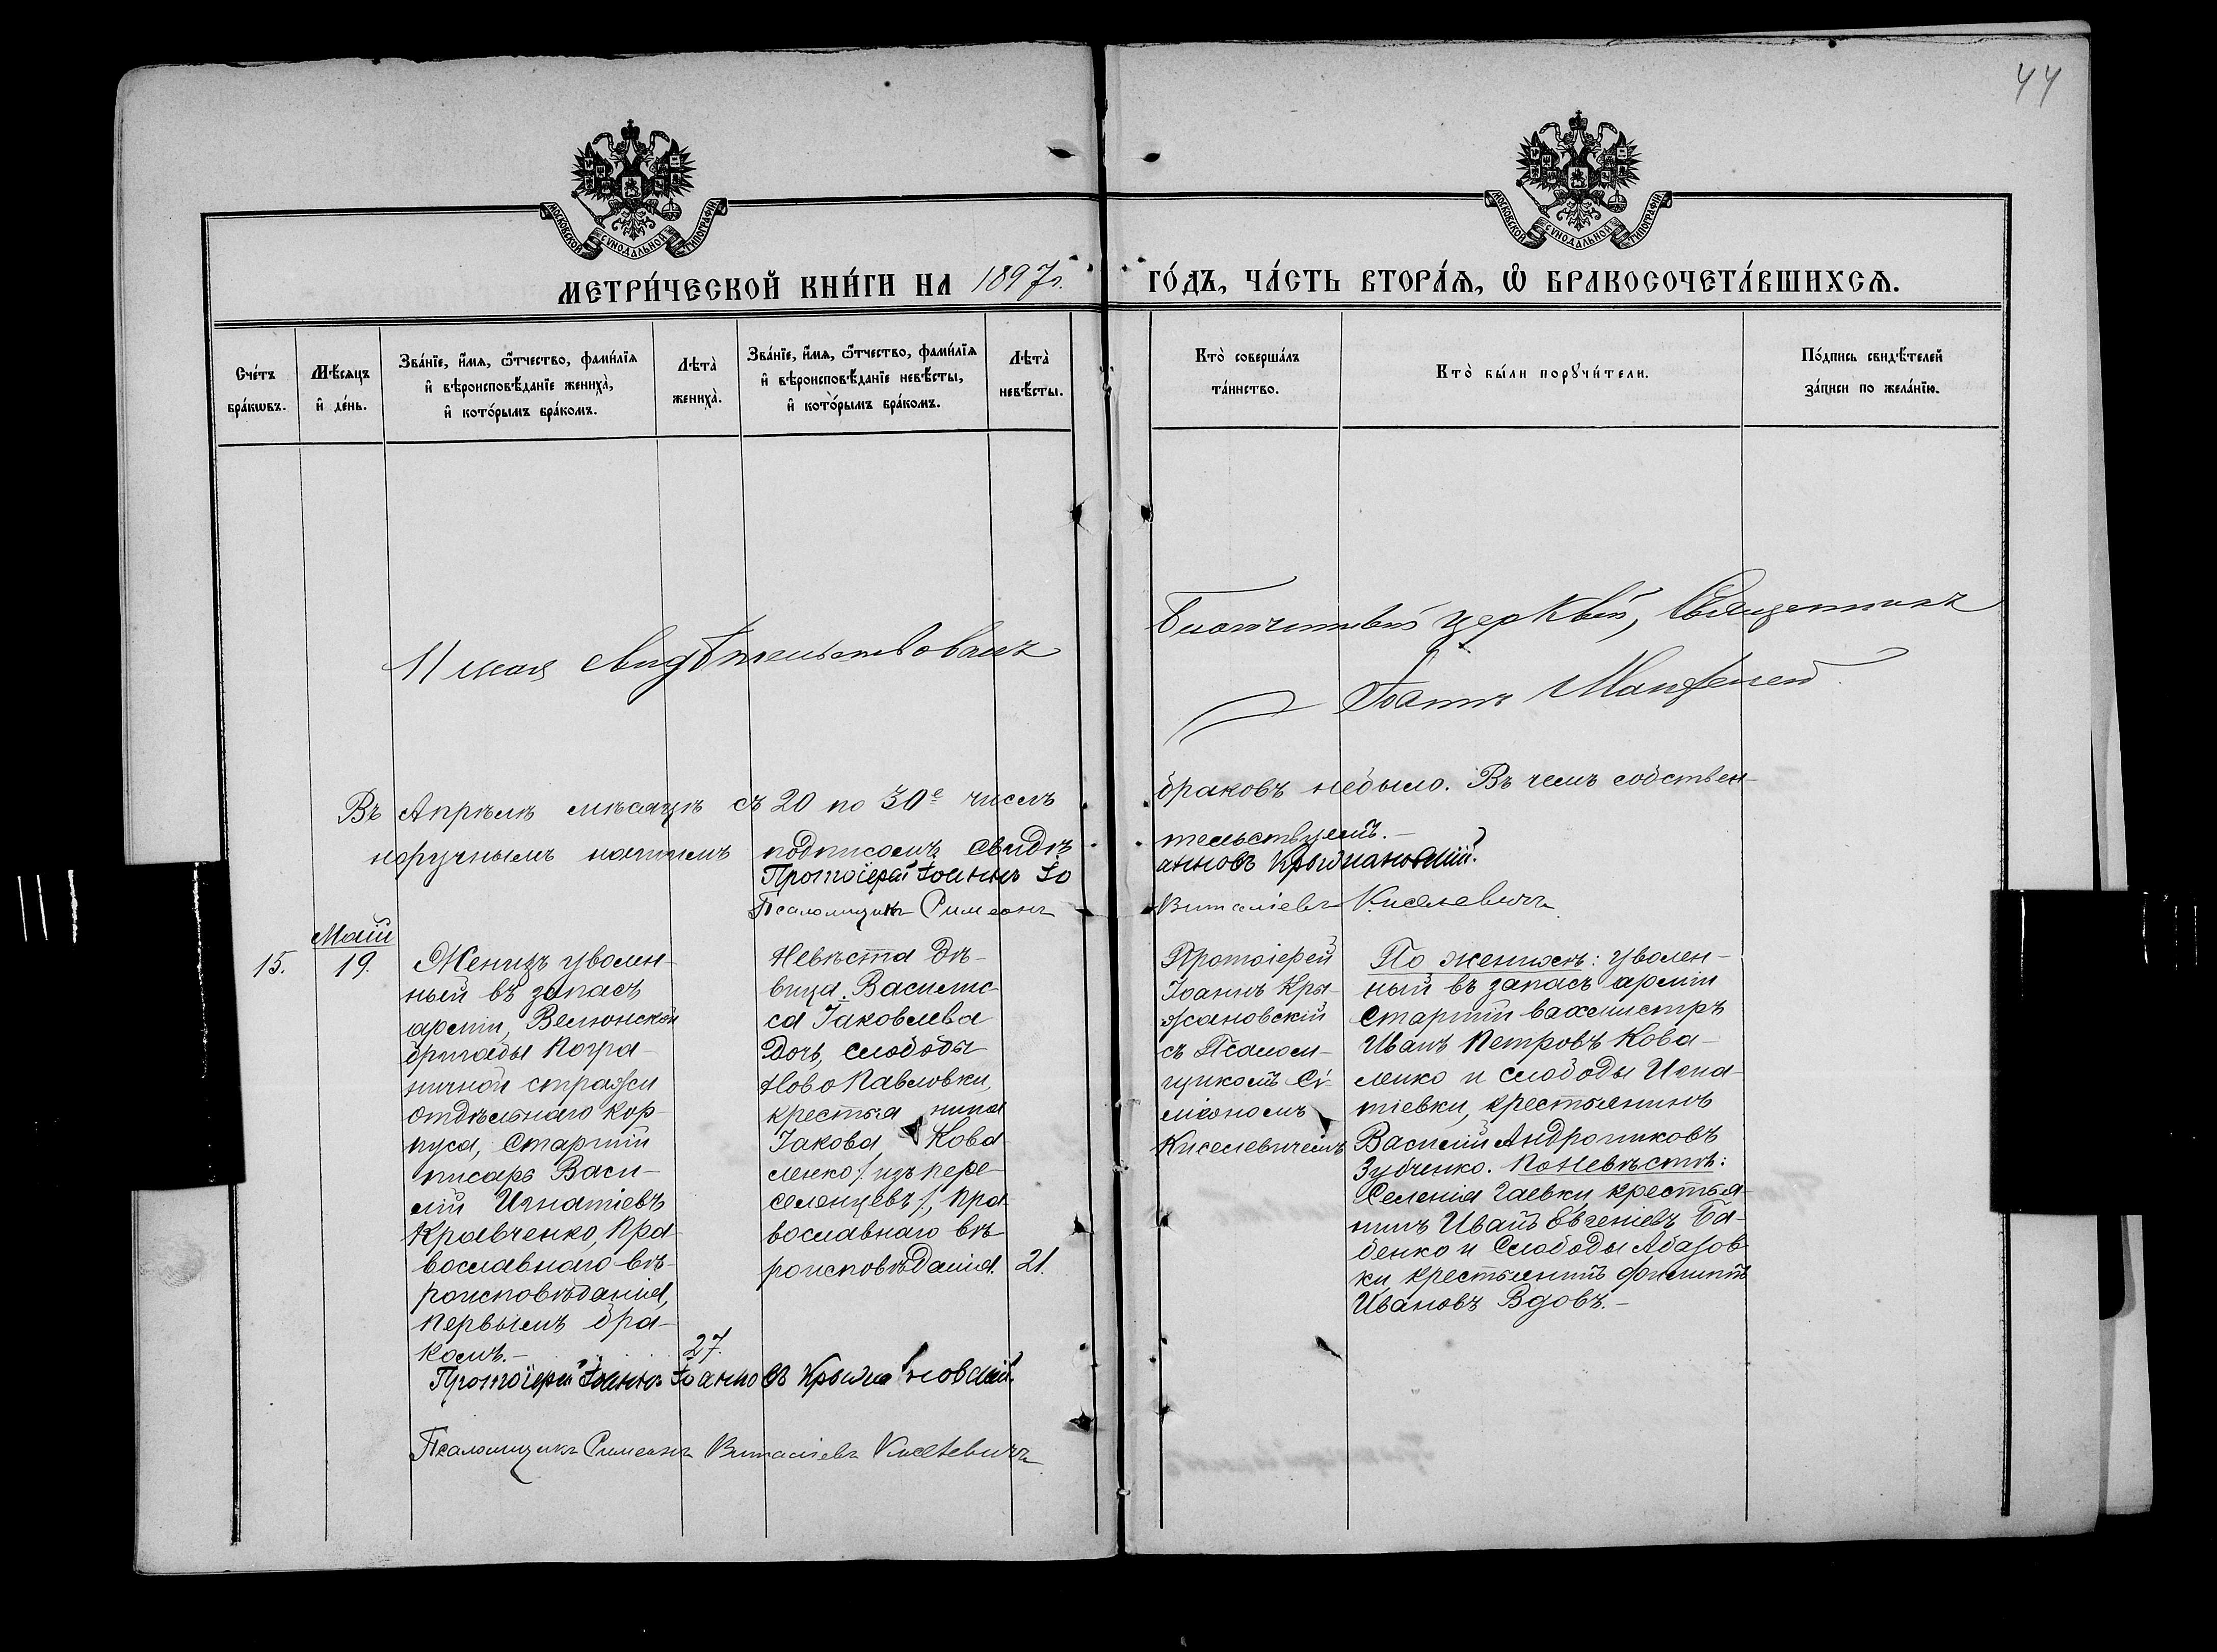 44
МОСКОВСКОЙ СУНОДАЛЬНОЙ ТИПОГРАФІИ
МОСКОВСКОЙ СУНОДАЛЬНОЙ ТИПОГРАФІИ
МЕТРИ́ЧЕСКОЙ КНИ́ГИ НА 1897 г.
ГО́ДЪ, ЧА́СТЬ ВТОРА́Ѧ, Ѡ БРАКОСОЧЕТА́ВШИХСѦ.
Сче́тъ
бра́кѡвъ.
Мѣ́сяцъ
и҆ де́нь.
Зва́нїе, и҆́мѧ, ѻ҆́тчество, фами́лїѧ
и҆ вѣроисповѣ́данїе жениха̀,
и҆ кото́рымъ бра́комъ.
Лѣта̀
жениха̀.
Зва́нїе, и҆́мѧ, ѻ҆́тчество, фами́лїѧ
и҆ вѣроисповѣ́данїе невѣ́сты,
и҆ кото́рымъ бра́комъ.
Лѣта̀
невѣ́сты.
Кто̀ соверша́лъ
та́инство.
Кто̀ бы́ли порꙋчи́тели.
По́дпись свидѣ́телей
за́писи по жела́нїю.
11 мая свидѣтельствовалъ
церквей, Священникъ
Іоаннъ
Въ Апрѣлѣ мѣсяцѣ съ 20 по 30е числъ
браковъ небыло. Въ чемъ собствен-
норучнымъ нашимъ подписомъ свидѣ
тельствуемъ.-
Протоіерей Іоаннъ Іо
анновъ Крыжановскій.
Псаломщикъ Симеонъ
Виталіевъ Киселевичъ
Май
15.
19.
Женихъ уволен-
ный въ запасъ
арміи, Велюнской
бригады Погра-
ничной стражи
Отдѣльнаго Кор-
пуса, Старшій
писарь Васи-
лій Игнатіевъ
Кравченко, Пра-
вославнаго вѣ-
роисповѣданія,
первымъ бра-
комъ.-
27.
Невѣста Дѣ-
вица Василис-
са Іаковлева
Дочь, слободы
Ново Павловки,
крестьянина
Іакова Кова
ленко /. изъ пере-
селенцевъ /., пра-
вославнаго вѣ-
роисповѣданія.
21.
Протоіерей
Іоаннъ Кры-
жановскій
съ Псалом-
щикомъ Си-
меономъ
Киселевичемъ
По женихѣ: уволен-
ный въ запасъ арміи
Старшій вахмистръ
Иванъ Петровъ Кова-
ленко и слободы Игна-
тіевки, крестьянинъ
Василій Андрониковъ
Зубченко. По Невѣстѣ:
Селенія Гаевки, крестья-
нинъ Иванъ Евгеніевъ Ба-
бенко и Слободы Абазов-
ки крестьянинъ Филиппъ
Ивановъ Вдовъ.-
Протоіерей Іоаннъ Іоанновъ Крыжановскій.
Псаломщикъ Симеонъ Виталіевъ Киселевичъ